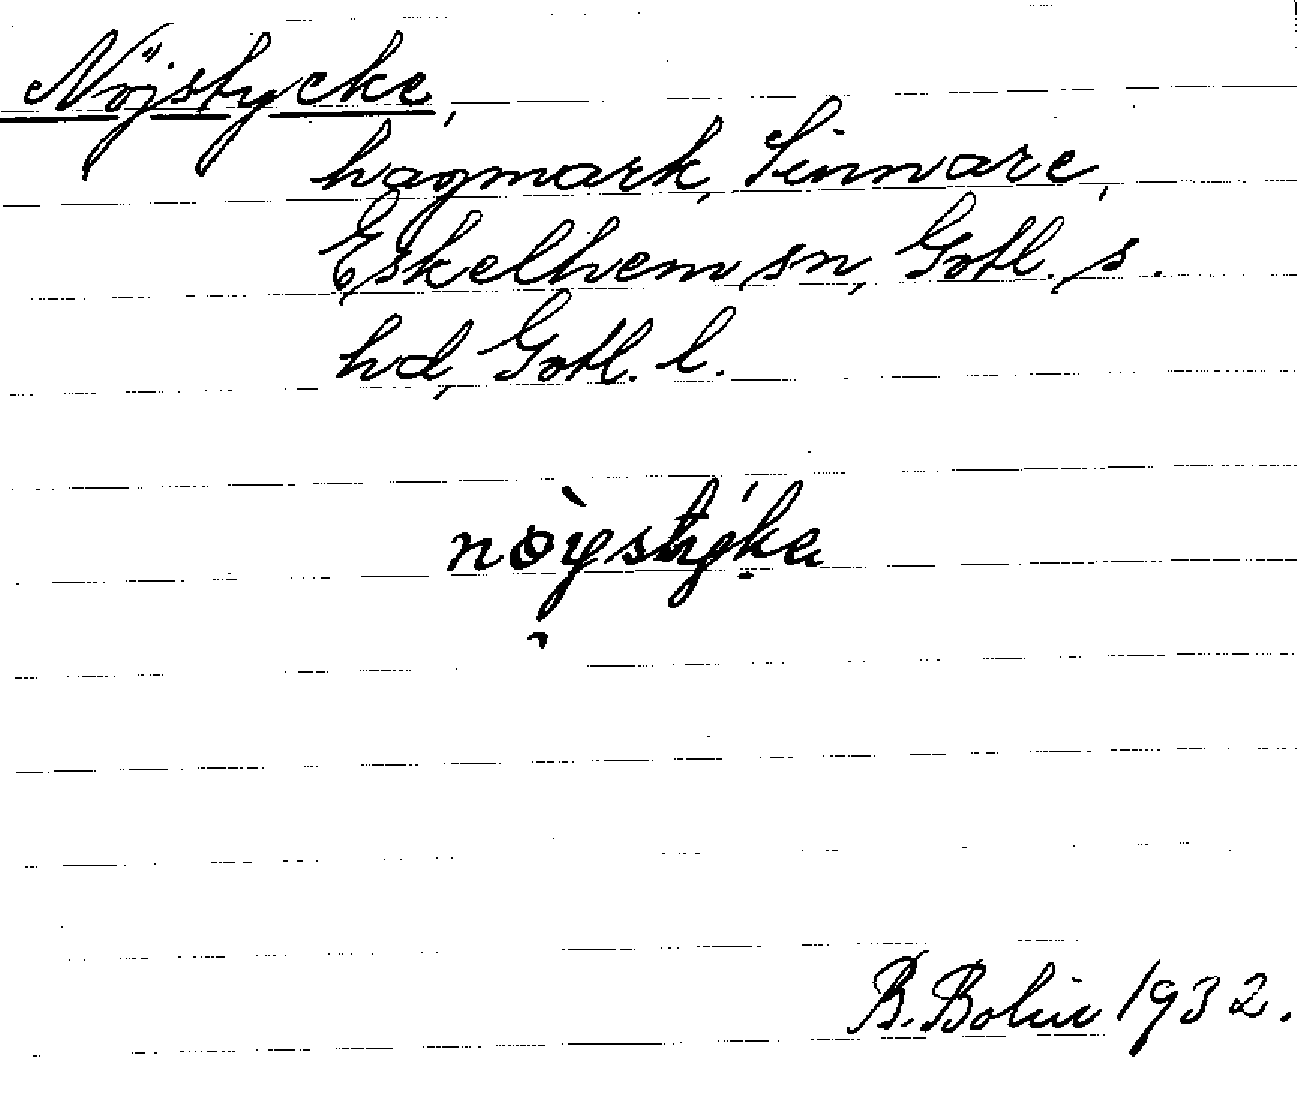 Nöjstycke,
hagmark, Sinnvare,
Eskelhem sn, Gotl. s.
hd, Gotl. l.
nòystýka
B. Bolin 1932.